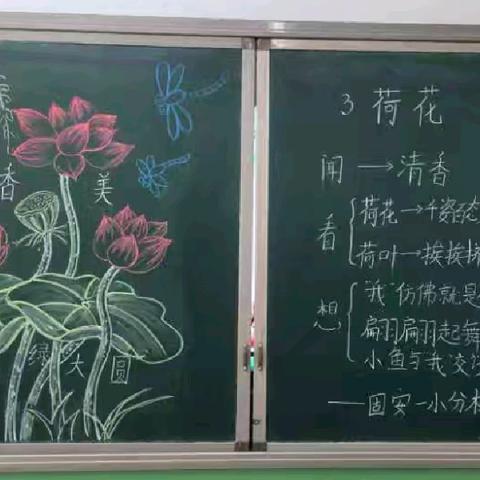 香 美
绿 大 圆
3 荷花
闻 → 清香
看
荷花 → 千姿百态
荷叶 → 挨挨挤
想
“我”仿佛就是
翩翩起舞
小鱼与我交
——固安一小分校